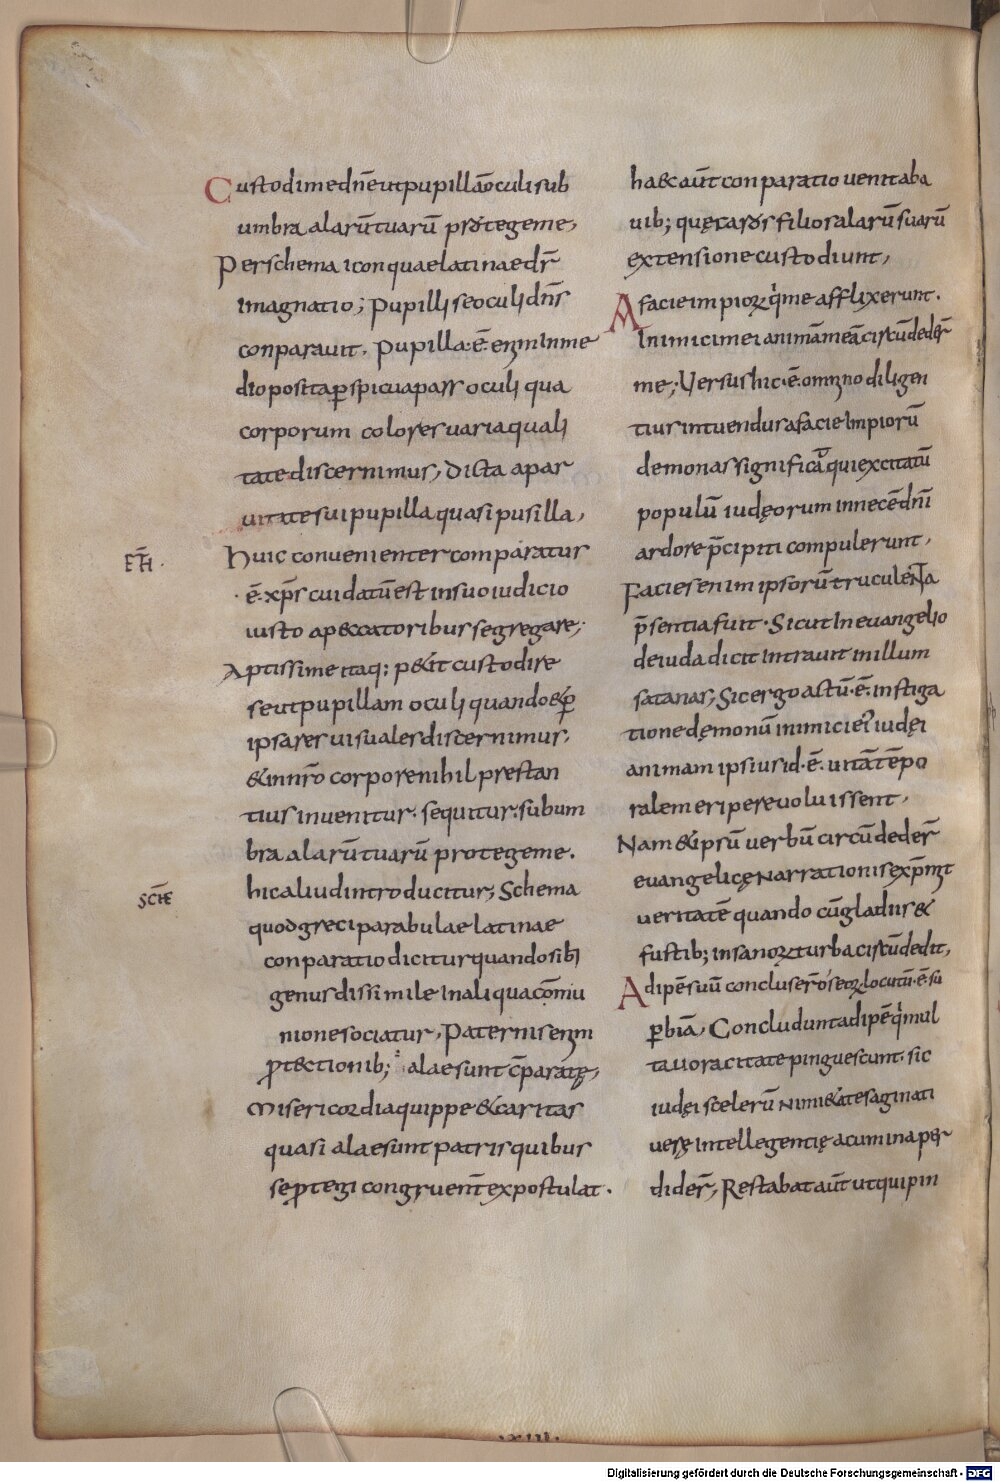 Custodi me dn̄e ut pupillā oculi sub
umbra alarū tuarū protege me;
Per schema icon quae latinae dr̄
imagnatio; Pupillę se oculi dn̄s
conparauit. Pupilla·ē·enim in me
dio posita ꝑspicua pars oculi qua
corporum colores uaria quali
tate discernimus; dicta a par
uitate sui pupilla quasi pusilla;
Huic conuenienter comparatur
·ē·xp̄s cui datū est in suo iudicio
iusto a peccatoribus segregare;
Aptissime itaq; petit custodire
se ut pupillam oculi quando & ꝑ
ipsa res uisuales discernimus,
& in nr̄o corpore nihil prestan
tius inuenitur. sequitur. sub um
bra alarū tuarū protege me.
hic aliud introducitur; Schema
quod greci parabulae latinae
conparatio dicitur quando sibi
genus dissimile in aliqua cōmu
nione sociatur, Paternis enim
ꝓtectionib; alae sunt cp̄aratę;
Misericordia quippe & caritas
quasi alae sunt patris quibus
se ꝓtegi congruent̄ expostulat.
ETH̄.
SCHĒ
haec aūt conparatio uenit ab a
uib; quę caros filios alarū suarū
extensione custodiunt;
A facie impioꝝ qͥ me afflixerunt.
Inimici mei animā meā circūdeder̄
me; Uersus hic·ē·omnino diligen
tius intuendus a facie impiorū
demonas significat qui excitatū
populū iudęorum in necē dn̄i
ardore p̄cipiti compulerunt,
Facies enim ipsorū truculenta
p̄sentia fuit. Sicut in euangelio
de iuda dicit intrauit in illum
satanas; Sic ergo actū·ē·instiga
tione dęmonū inimici ei' iudęi
animam ipsius id·ē·uitā tēpo
ralem eripere uoluissent,
Nam & ipsū uerbū circūdeder̄
euangelicę narrationis exp̄mit
ueritatē quando cū gladiis &
fustib; insanoꝝ turba circūdedit,
Adipē suū concluser̄ os eoꝝ locutū·ē·su
ꝑbiā, Concludunt adipē qͥ mul
ta uoracitate pinguescunt. sic
iudęi scelerū nimietate saginati
uerę intellegentię acumina per
dider̄, Restabat aūt ut qui pin
xiii.
Digitalisierung gefördert durch die Deutsche Forschungsgemeinschaft - DFG